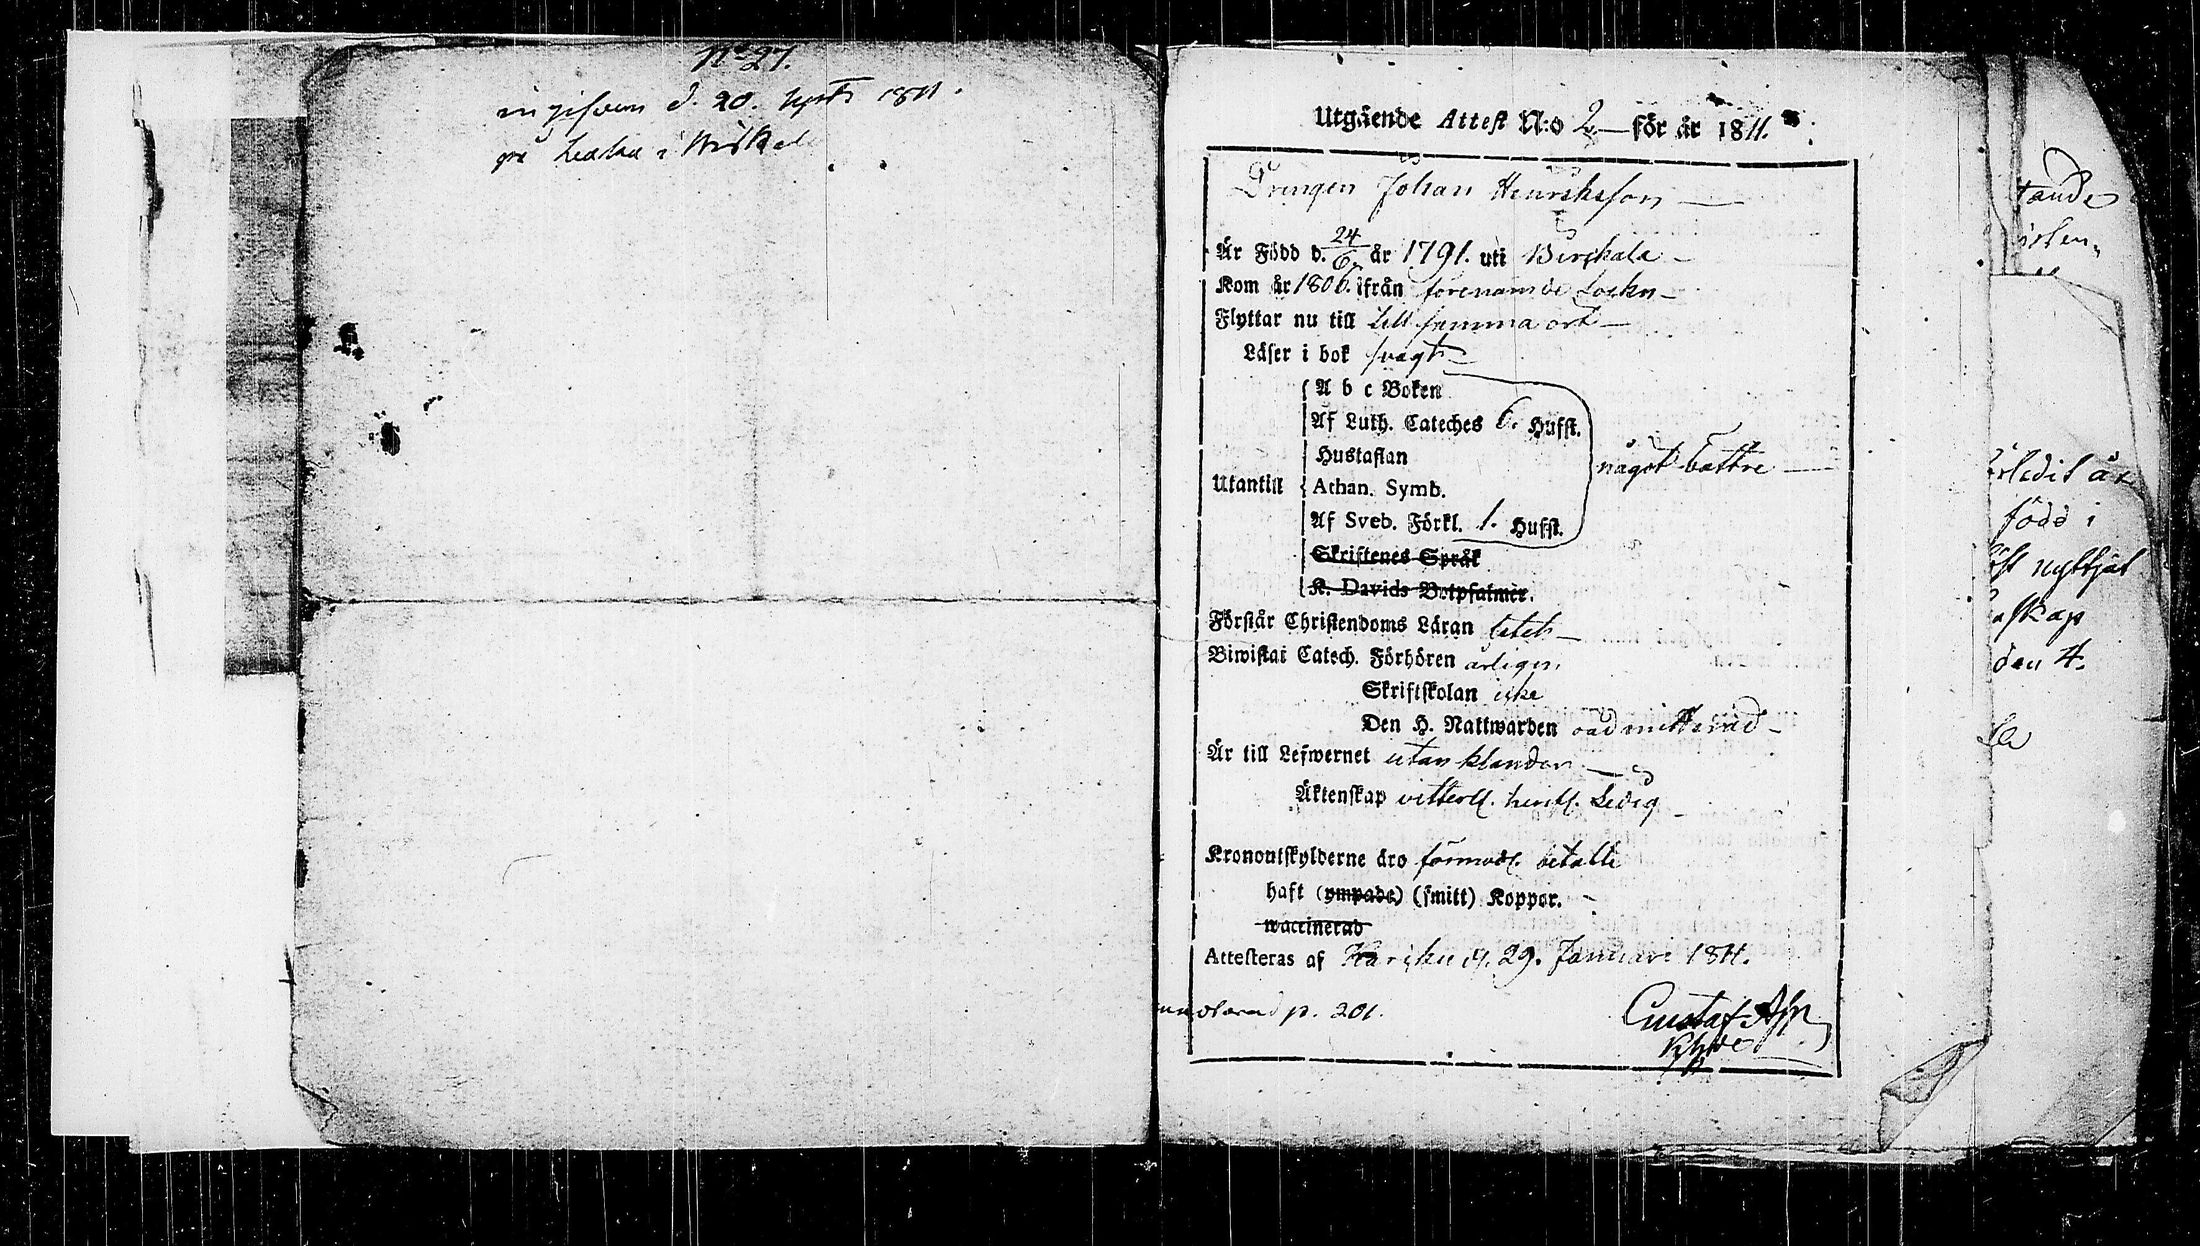 No 27.
ingifven d. 20. 1811.
på i
Utgående Attest N:o 2 för år 1811.
Drengen Johan Henriksson
Är Född d. 24/6 år 1791. uti Birckala
Kom år 1806. ifrån förenämde Sockn
Flyttar nu till till samma ort
Läser i bok svagt
A b c Boken
Af Luth. Cateches 6. Hufst.
Hustaflan
något bättre
Utantill
Athan. Symb.
Af Sveb. Förkl. 1. Hufst.
Skriftenes Språk
K. Davids Botpsalmer.
Förstår Christendoms Läran litet
Biwistat Catech. Förhören årligen
Skriftskolan icke
Den H. Nattwarden oadmitterad
Är till Lefwernet utan klander
Äktenskap vitterl. hinderl. Ledig
Kronoutskylderne äro förmodl. betalte
haft (ympade) (smitt) Koppor.
waccinerad
Attesteras af Karcku d. 29. Januari 1811.
p. 201.
Gustaf Asp
tande
född i
nyttjat
den 4.